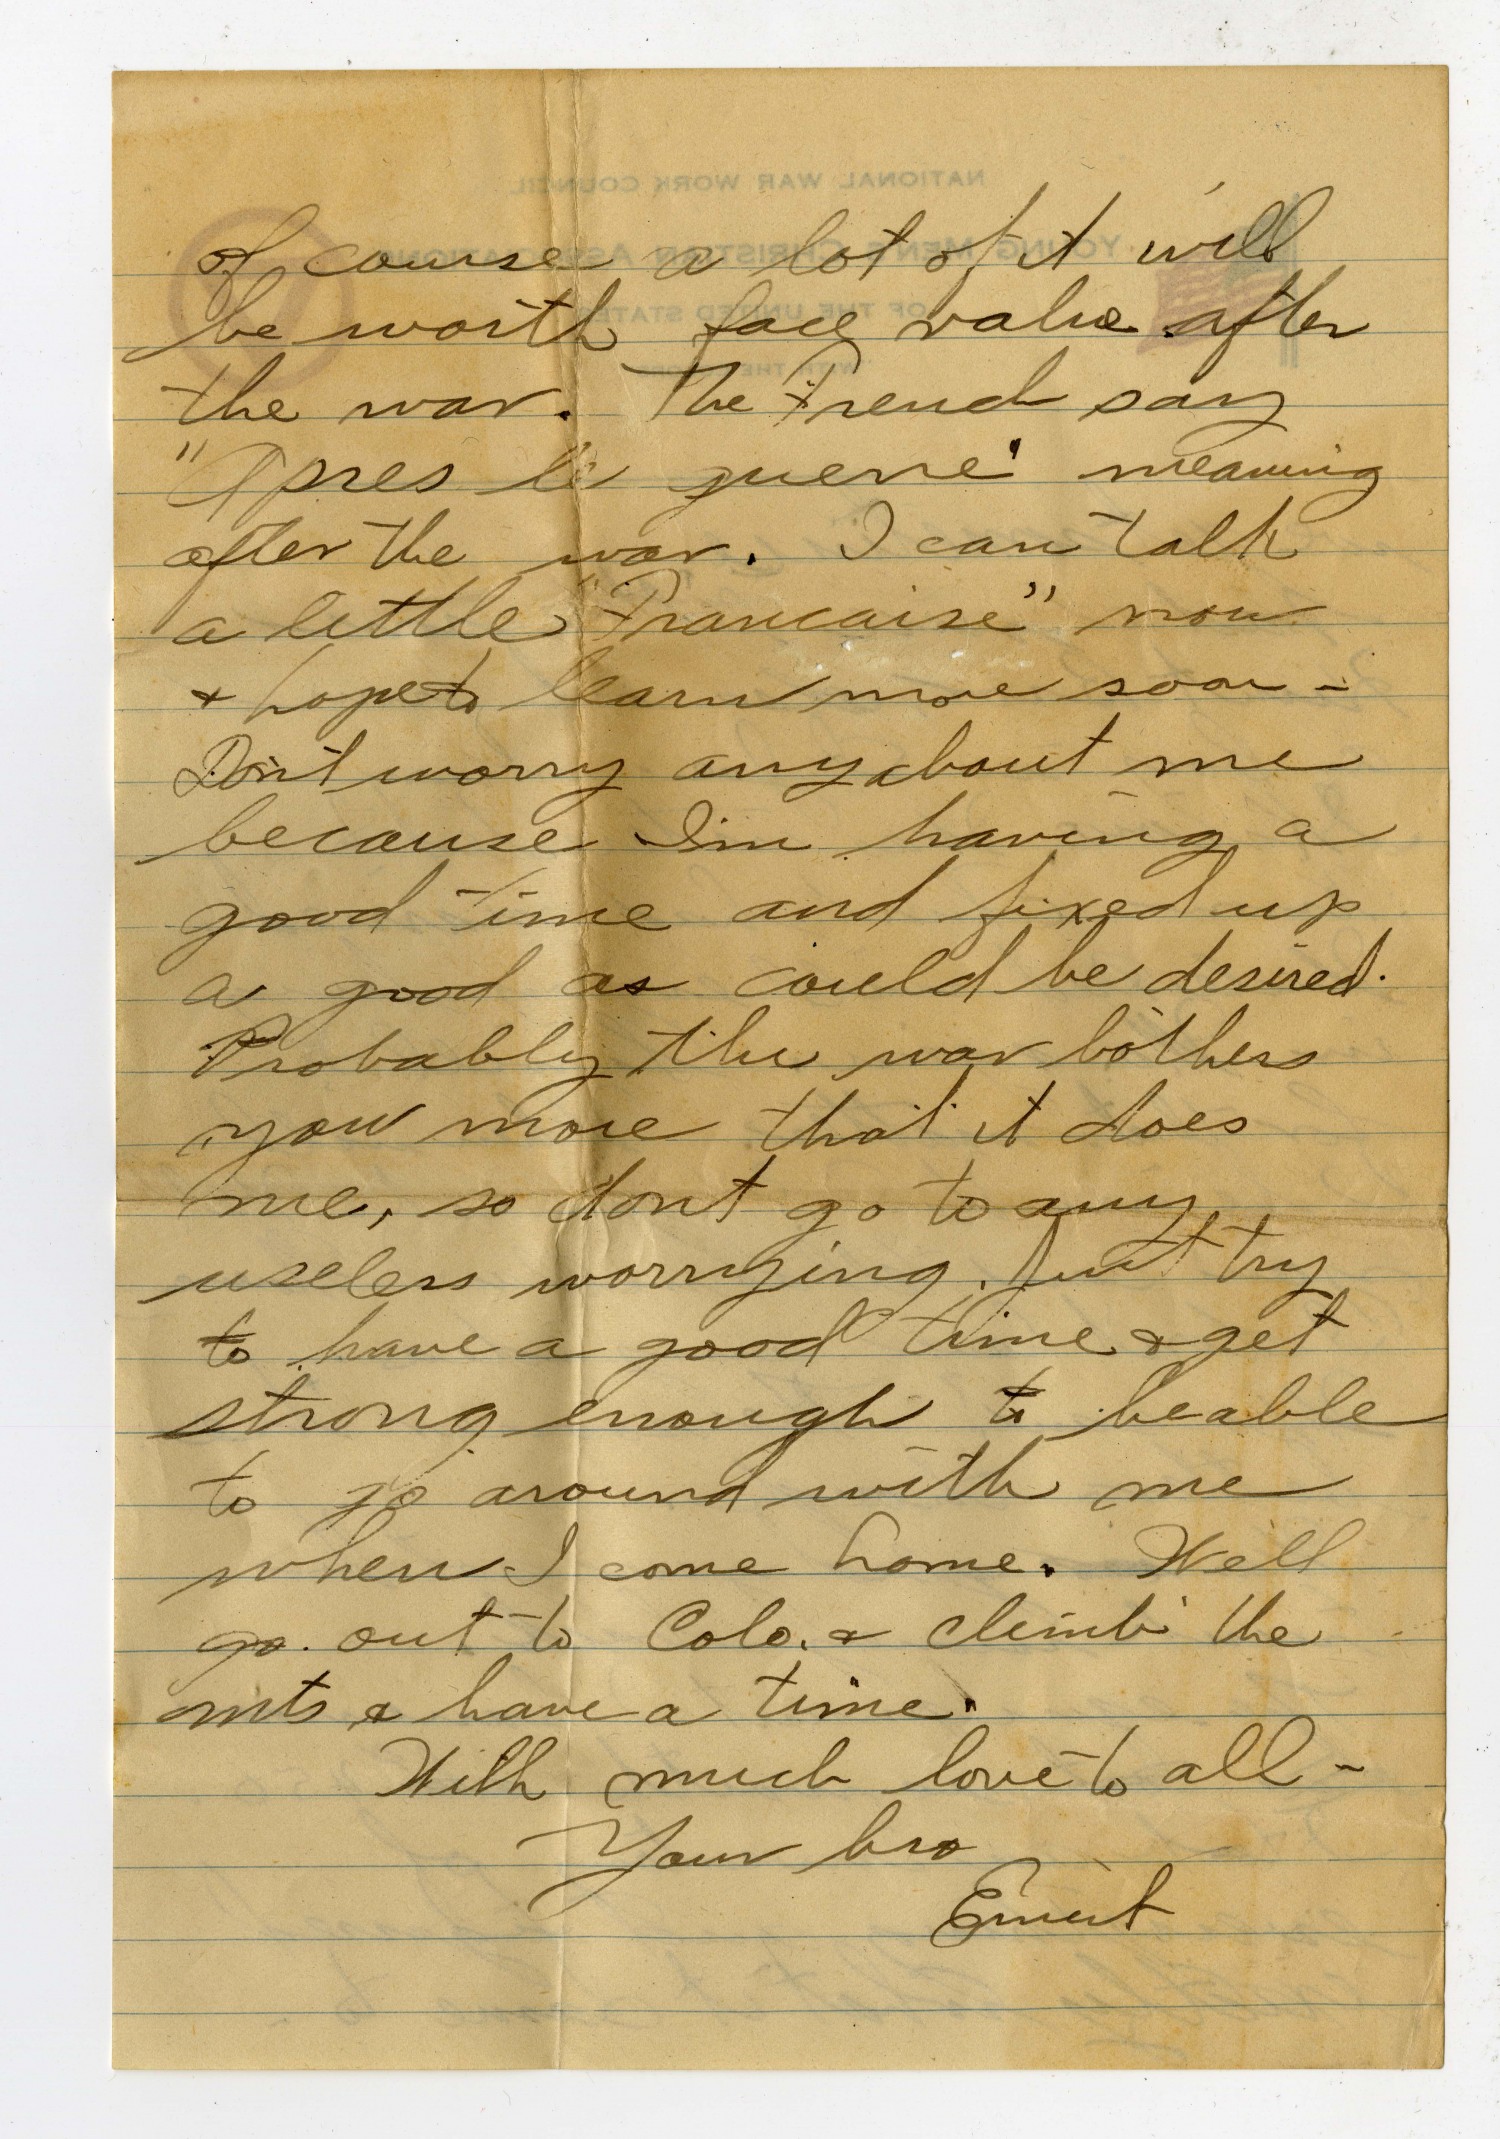 NATIONAL WAR WORK COUNCIL
YOUNG MEN'S CHRISTIAN ASSOCIATIONS
OF THE UNITED STATES
"WITH THE
of course a lot of it will
be worth face value after
the war. The French say
"Apres le guerre" meaning
after the war. I can talk
a little "Francaise" now
& hope to learn more soon -
Don't worry any about me
because I'm having a
good time and fixed up
a good as could be desired.
Probably the war bothers
you more that it does
me, so dont go to any
useless worrying. Just try
to have a good time & get
strong enough to be able
to go around with me
when I come home. Well
go out to Colo. & climb the
mts & have a time.
With much love to all -
Your bro
Ernest